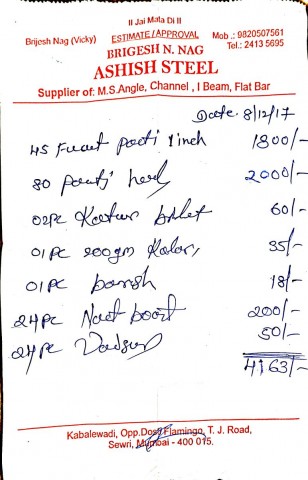 II Jai Mata Di II
Brijesh Nag (Vicky) ESTIMATE / APPROVAL Mob .: 9820507561
Tel.: 2413 5695
BRIGESH N. NAG
ASHISH STEEL
Supplier of: M.S.Angle, Channel , I Beam, Flat Bar
Date 8/12/17
45 Fuut patti 1 inch 1800/-
80 2000/-
02pc 60/-
01 pc 200gm 35/-
01 pc 18/-
24 pc Naet boost 200/-
24 pc 50/-
4163/-
Kabalewadi, Opp.Dosti Flamingo, T. J. Road,
Sewri, Mumbai - 400 015.